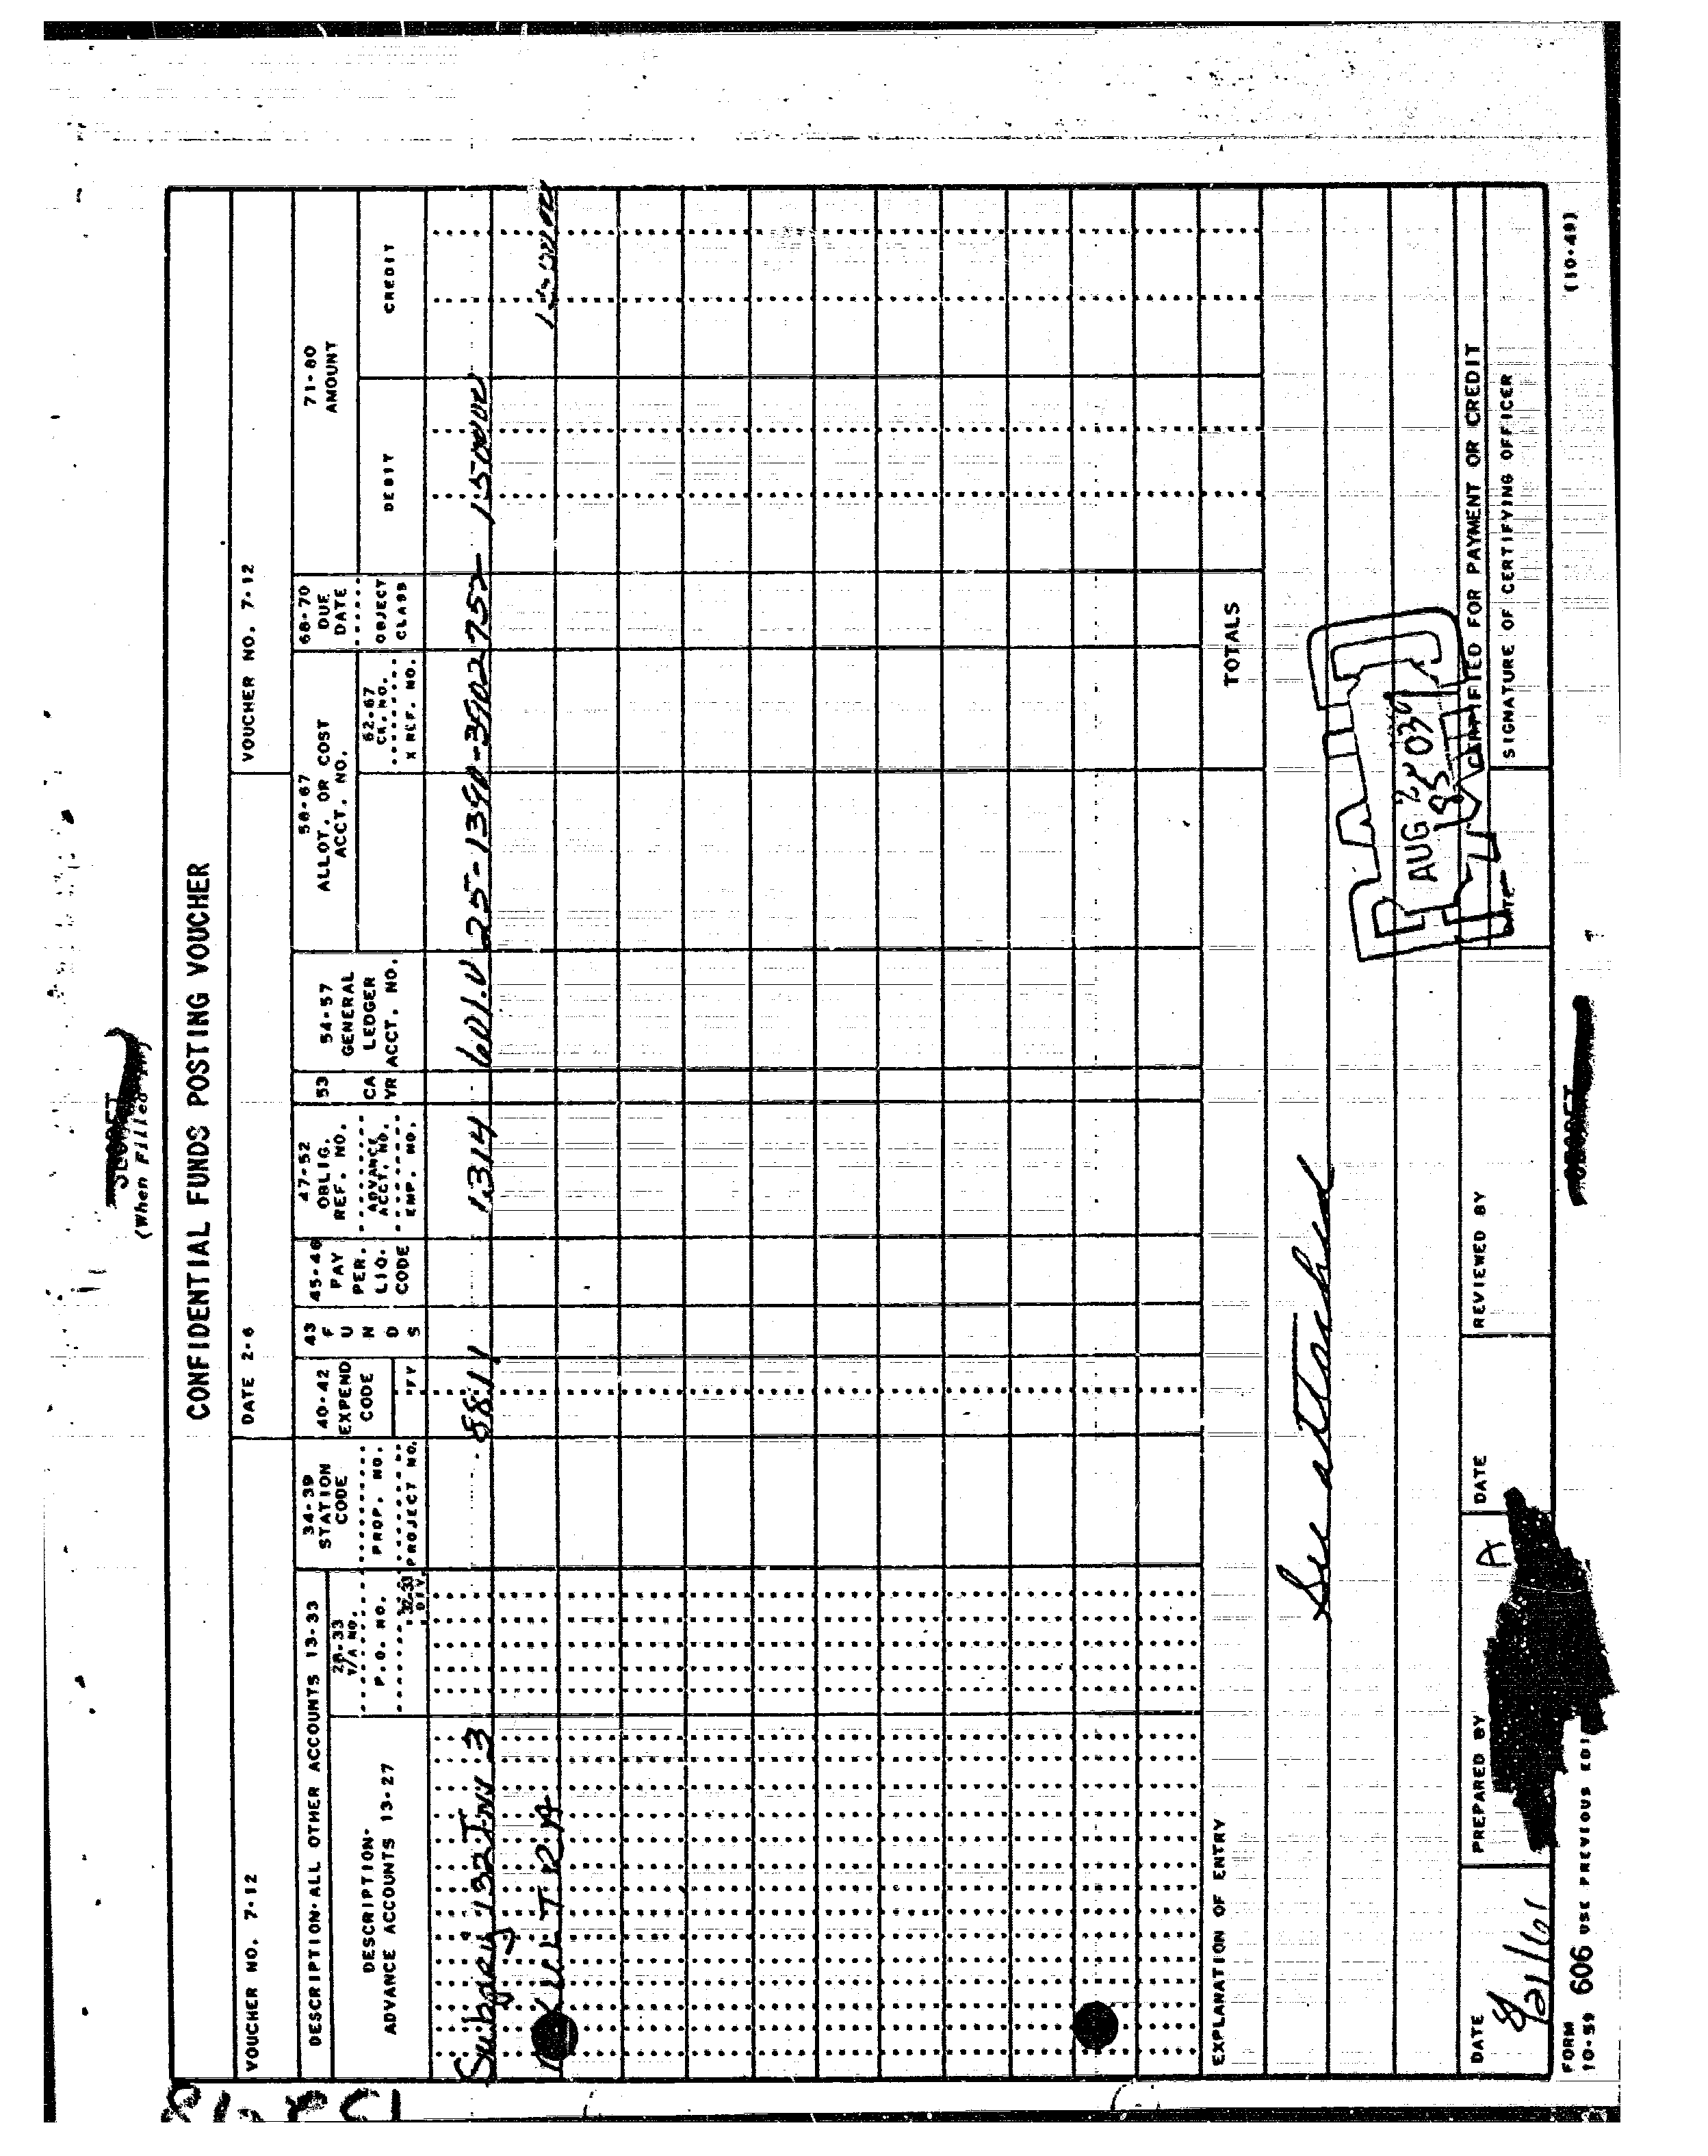 (When Filled
CONFIDENTIAL FUNDS POSTING VOUCHER
VOUCHER NO. 7-12 DATE 2-6 VOUCHER NO. 7-12
DESCRIPTION-ALL OTHER ACCOUNTS 13-33
DESCRIPTION-
ADVANCE ACCOUNTS 13-27
28-33
T/A NO.
P.O. NO.
32-33
DIV.
34-39
STATION
CODE
PROP. NO.
PROJECT NO.
40-42
EXPEND
CODE
FY
43
F
U
N
D
S
45-46
PAY
PER.
LIQ.
CODE
47-52
OBLIG.
REF. NO.
ADVANCE
ACCT. NO.
EMP. NO.
53
CA
YR
54-57
GENERAL
LEDGER
ACCT. NO.
58-67
ALLOT. OR COST
ACCT. NO.
62-67
CK. NO.
X REF. NO.
68-70
DUE
DATE
OBJECT
CLASS
71-80
AMOUNT
DEBIT
CREDIT
Subproj 132 Inv 3 1314 601.0 25-1390-3902 752 150000
150000
TOTALS
EXPLANATION OF ENTRY
See attached
AUG
CERTIFIED FOR PAYMENT OR CREDIT
DATE PREPARED BY DATE REVIEWED BY DATE SIGNATURE OF CERTIFYING OFFICER
8/21/61
FORM
10-59 606 USE PREVIOUS EDI
(10-49)